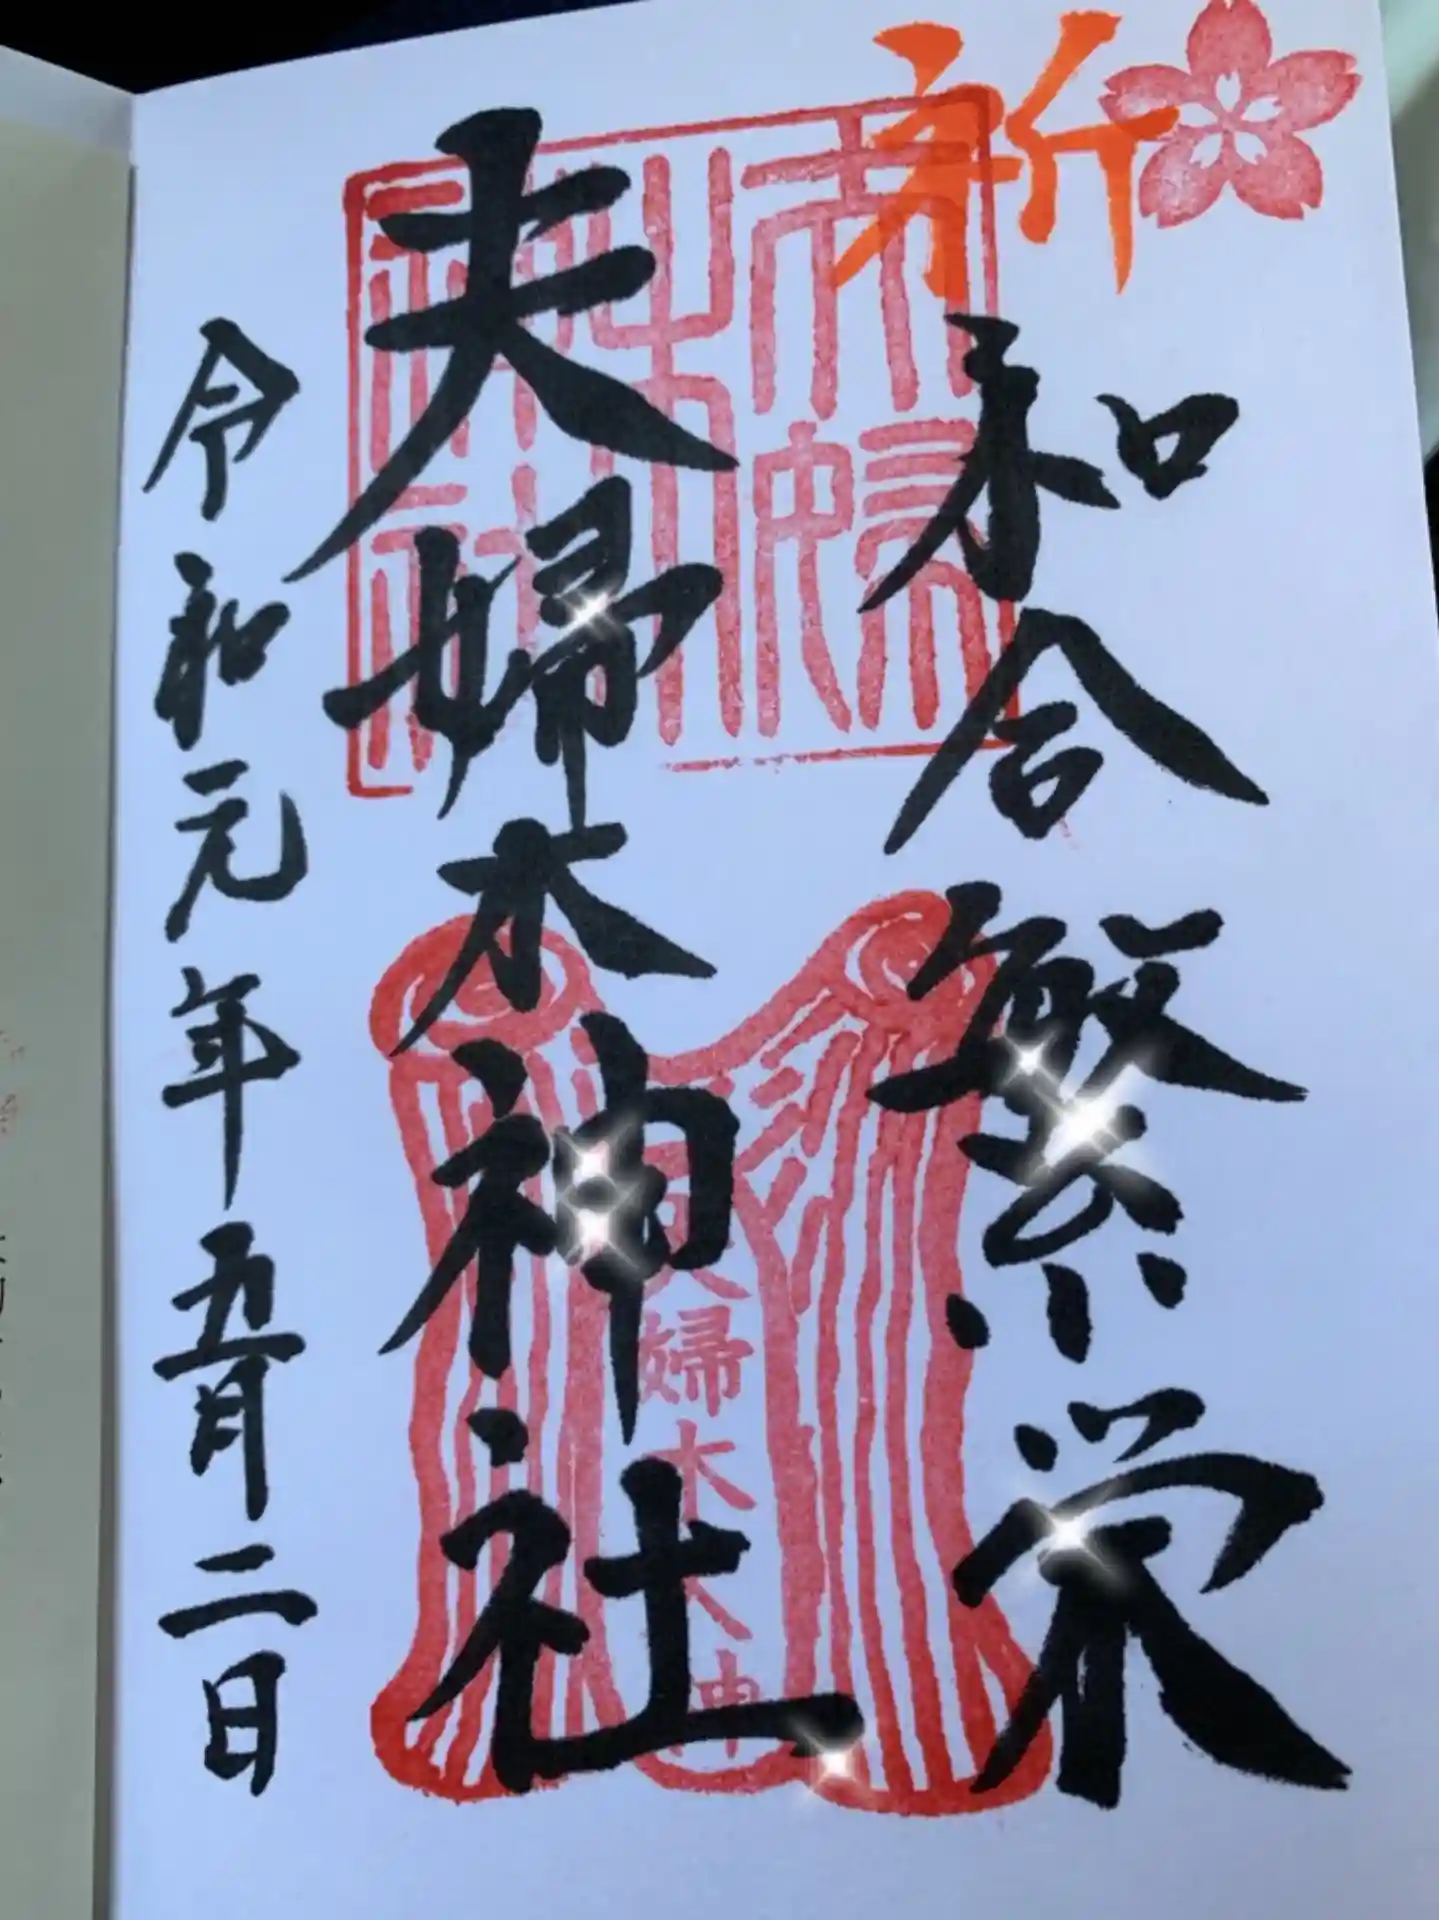 祈
和合繁栄
夫婦木神社
令和元年五月二日
夫婦木神社
夫婦木大神